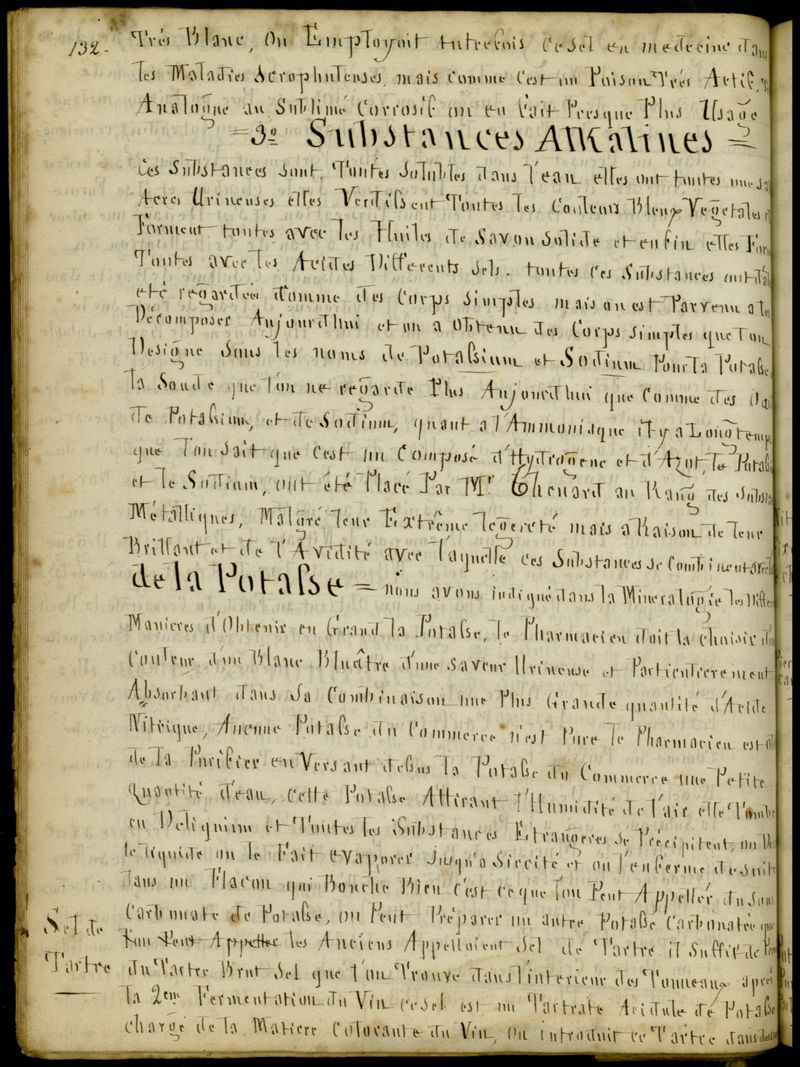 132.
Très Blanc, On Employoit autrefois ce Sel en medecine dans
les Maladies Scrophuleuses, mais comme c'est un Poison Très Actif,
Analogue au Sublimé Corrosif on en fait Presque Plus Usage
=3º Substances Alkalines =
Ces Substances sont Toutes Solubles dans l'eau elles ont toutes une
Acres Urineuses elles Verdissent Toutes les Couleurs Bleux Vegetales
Forment toutes avec les Huiles de Savon Solide et enfin elles For
Toutes avec les Acides Differents Sels. toutes ces Substances ont
eté regardées Comme des Corps Simples mais on est Parvenu a les
Décomposer Aujourdhui et on a Obtenu des Corps simples que l'on
Designe Sous les noms de Potassium et Sodium Pour la Potasse
la Soude que l'on ne regarde Plus Aujourdhui que Comme des
de Potassium, et de Sodium, quant a l'Ammoniaque il y a Longtemps
que l'on sait que c'est un Composé d'Hydrogene et d'Azot, le Potass
et le Sodium, ont été Placé Par Mr. Thenard au Rang des Subst
Métalliques, Malgré leur Extrême legereté mais a Raison de leur
Brillant et de l'Avidité avec laquelle ces Substances se Combinent avec
de la Potasse = nous avons indiqué dans la Mineralogie les Diffe
Manieres d'Obtenir en Grand la Potasse, le Pharmacien doit la choisir d'u
Couleur d'un Blanc Bluâtre d'une Saveur Urineuse et Particulierement
Absorbant dans Sa Combinaison une Plus Grande quantité d'Acide
Nitrique, Aucune Potasse du Commerce n'est Pure le Pharmacien est
de la Purifier en Versant dessus la Potasse du Commerce une Petite
Quantité d'eau, cette Potasse Attirant l'Humidité de l'air elle Tombe
en Deliquium et Toutes les Substances Etrangeres se Précipitent, on
le liquide on le Fait evaporer Jusqu'a Siccité et on l'enferme de suite
dans un Flacon qui Bouche Bien c'est ce que l'on Peut Appeller du Sous
Carbonate de Potasse, on Peut Préparer un autre Potasse Carbonatée que
l'on Peut Appeller les Anciens Appelloient Sel de Tartre il Suffit de
Sel de
Tartre
du Tartre Brut Sel que l'on Trouve dans l'interieur des Tonneaux après
la 2eme Fermentation du Vin ce sel est un Tartrate Acidule de Potasse
chargé de la Matiere Colorante du Vin, on introduit ce Tartre dans des